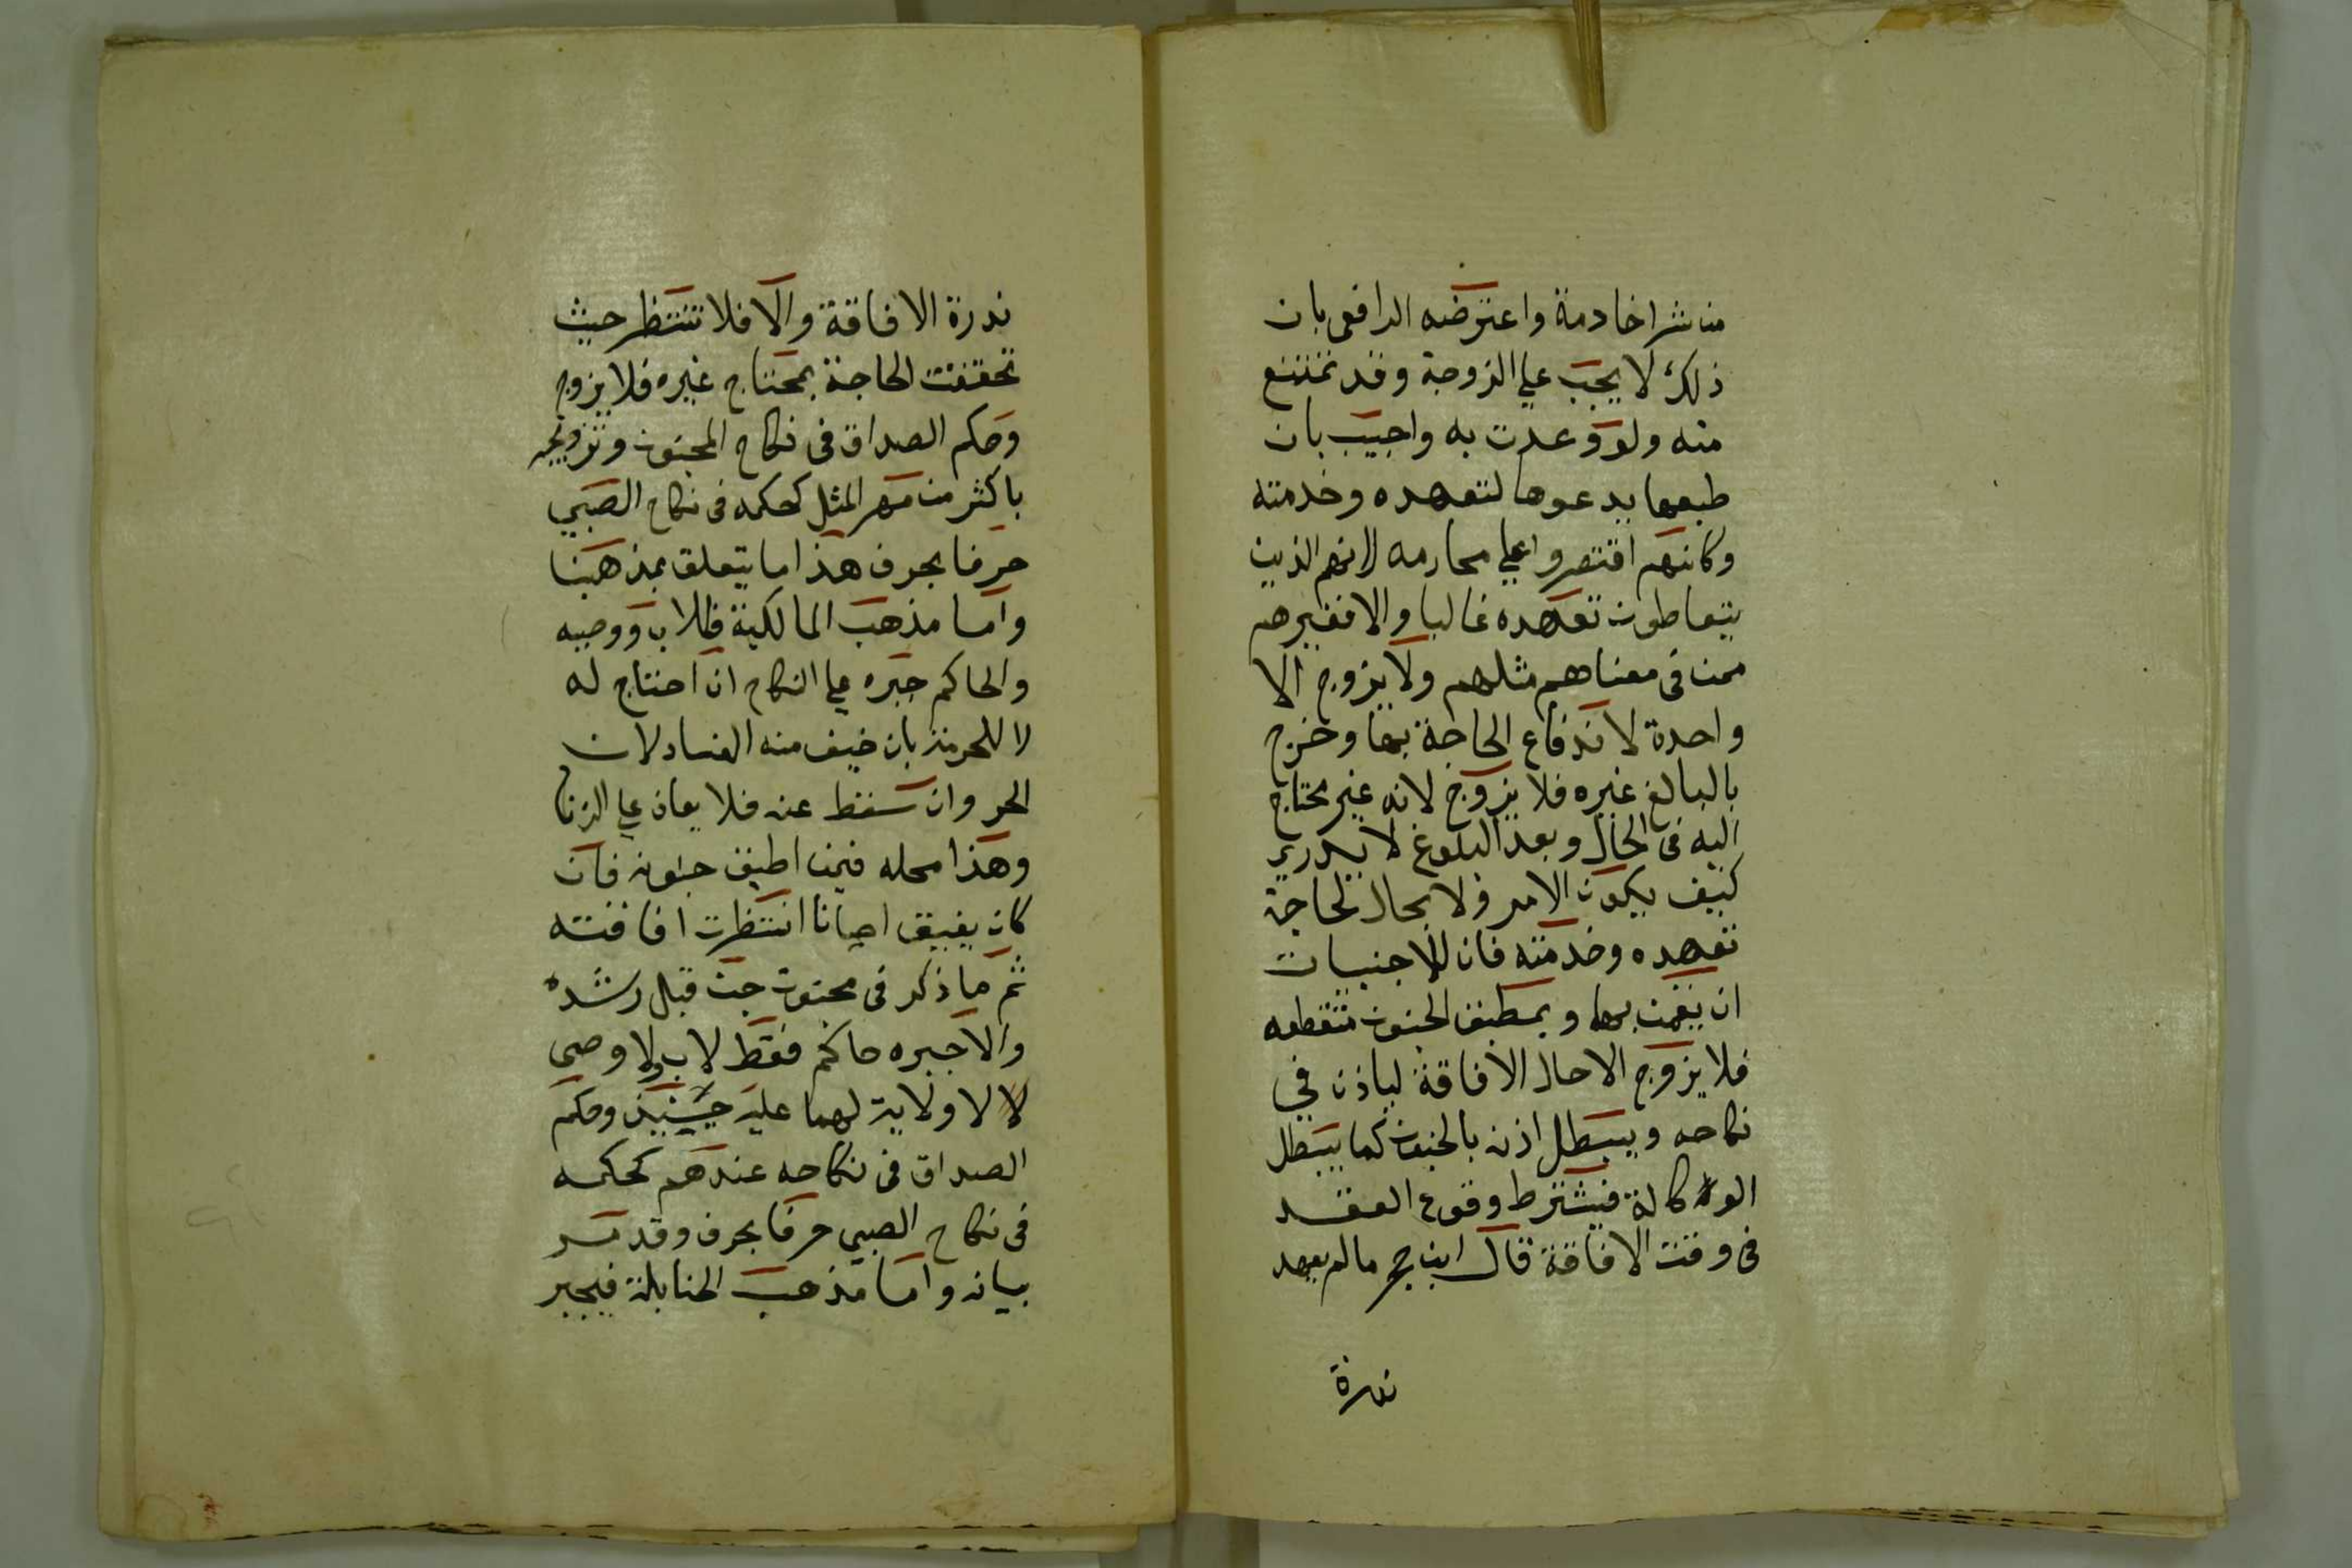 من شرا خادمة واعترضه الرافعى بان
ذلك لا يجب علي الزوجة وقد تمتنع
منه ولو وعدت به واجيب بان
طبعها يدعوها لتعهده وخدمته
وكانهم اقتصروا علي محارمه لانهم الذين
يتعاطون تعهده غالبا والا فغيرهم
ممن فى معناهم مثلهم ولا يزوج الا
واحدة لاندفاع الحاجة بها وخرج
بالبالغ غيره فلا يزوج لانه غير محتاج
اليه فى الحال وبعد البلوغ لا يدرى
كيف يكون الامر ولا مجال لحاجة
تعهده وخدمته فان للاجنبيات
ان يقمن بها وبمطبق الجنون متقطعه
فلا يزوج الا حال الافاقة لياذن في
نكاحه ويبطل اذنه بالجنون كما يبطل
الوكالة فيشترط وقوع العقد
فى وقت الافاقة قال ابن حجر ما لم يعهد
ندرة
ندرة الافاقة والا فلا تنتظر حيث
تحققت الحاجة بمحتاج غيره فلا يزوج
وحكم الصداق فى نكاح المجنون وتزويجه
باكثر من مهر المثل كحكمه فى نكاح الصبي
حرفا بحرف هذا ما يتعلق بمذهبنا
واما مذهب المالكية فللاب ووصيه
والحاكم جبره علي النكاح ان احتاج له
لا للخدمة بان خيف منه الفساد لان
الحد وان سقط عنه فلا يعان علي الزنا
وهذا محله فيمن اطبق جنونه فان
كان يفيق احيانا انتظرت افاقته
ثم ما ذكر فى مجنون جن قبل رشده
والا جبره حاكم فقط لا اب ولا وصى
لا لا ولاية لهما عليه حينئذ وحكم
الصداق فى نكاحه عندهم كحكمه
فى نكاح الصبي حرفا بحرف وقد مر
بيانه واما مذهب الحنابلة فيجبر